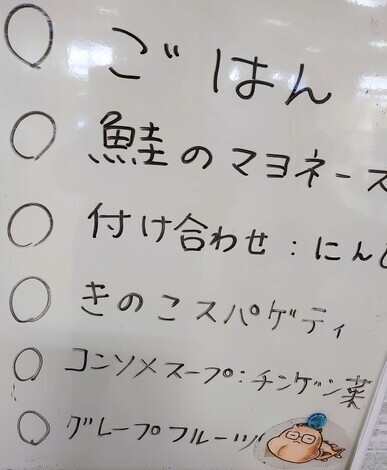 ○ ごはん
○ 鮭のマヨネース
○ 付け合わせ：にん
○ きのこスパゲティ
○ コンソメスープ：チンゲン菜
○ グレープフルーツ